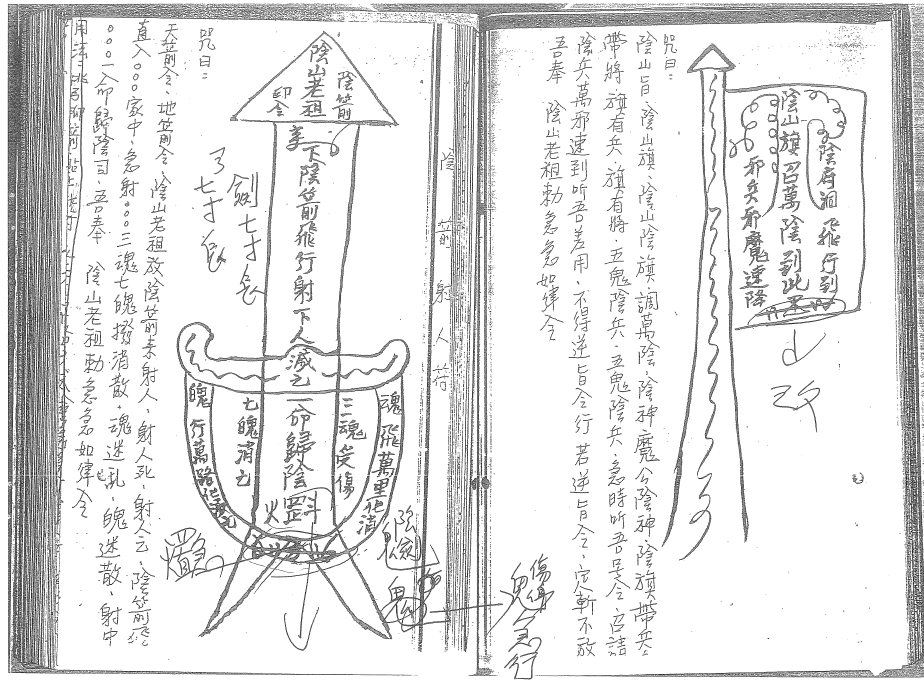 陰府
飛行到
陰山旗召萬陰到此
邪兵邪魔速降
咒曰：
陰山旨、陰山旗、陰山陰旗、調萬陰、陰神魔公陰神、陰旗帶兵
帶將、旗有兵、旗有將、五鬼陰兵、五鬼陰兵、急時听吾号令、召請
陰兵萬邪速到听吾差用、不得逆旨令行、若逆旨令、定斬不放
吾奉　陰山老祖勅急急如律令
傷
鬼
急行
陰箭射人符
陰箭
陰山老祖
印令
下陰箭飛行射下人
滅亡
一命歸陰
三魂受傷
七魄消亡
魂飛萬里化消
魄行萬路化
劍七寸長
了七寸長
陰
鬼
咒曰：
天箭令、地箭令、陰山老祖放陰箭來射人、射人死、射人亡、陰箭飛
直入○○○家中、急射○○○三魂七魄撥消散、魂迷乱、魄迷散、射中
○○○一命歸陰司、吾奉　陰山老祖勅急急如律令